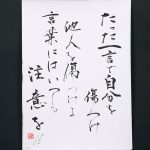 たった一言で自分を
傷つけ
他人を傷つける
言葉にはいつも
注意を